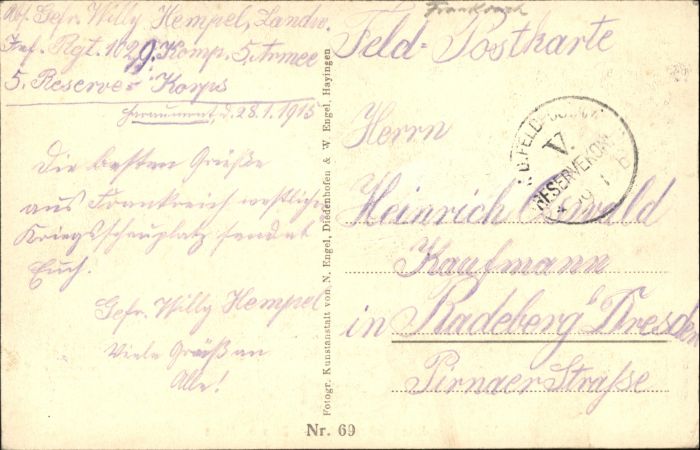 Frankreich
Abs. Gefr. Willy Hempel, Landw.
Inf. Rgt. 102 9. Komp. 5. Armee
5. Reserve-Korps
d. 28.1.1915
Die besten Grüße
aus Frankreich westlicher
Kriegsschauplatz sendet
Euch.
Gefr. Willy Hempel
Viele Grüß an
Alle!
Fotogr. Kunstanstalt von N. Engel, Diedenhofen & W. Engel, Hayingen
Nr. 69
Feld-Postkarte
V.
RESERVEKORPS
Herrn
Heinrich Oswald
Kaufmann
in Radeberg b/ Dresden
Pirnaer Straße